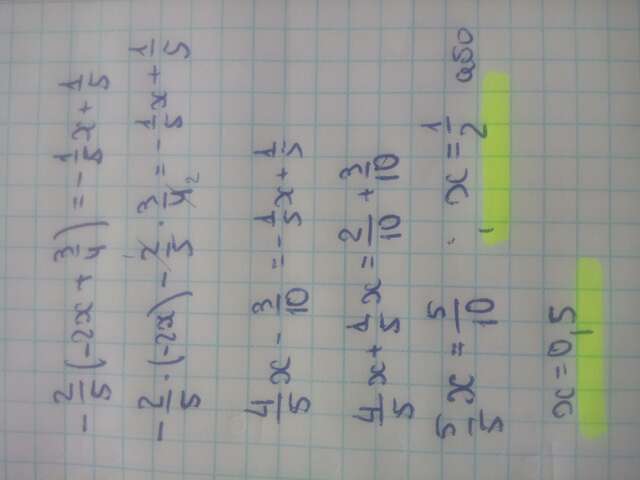 -2/5(-2x + 3/4) = -1/5x + 1/5
-2/5 · (-2x) - 2/5 · 3/4₂ = -1/5x + 1/5
4/5x - 3/10 = -1/5x + 1/5
4/5x + 1/5x = 2/10 + 3/10
5/5x = 5/10 x = 1/2 або
x = 0,5